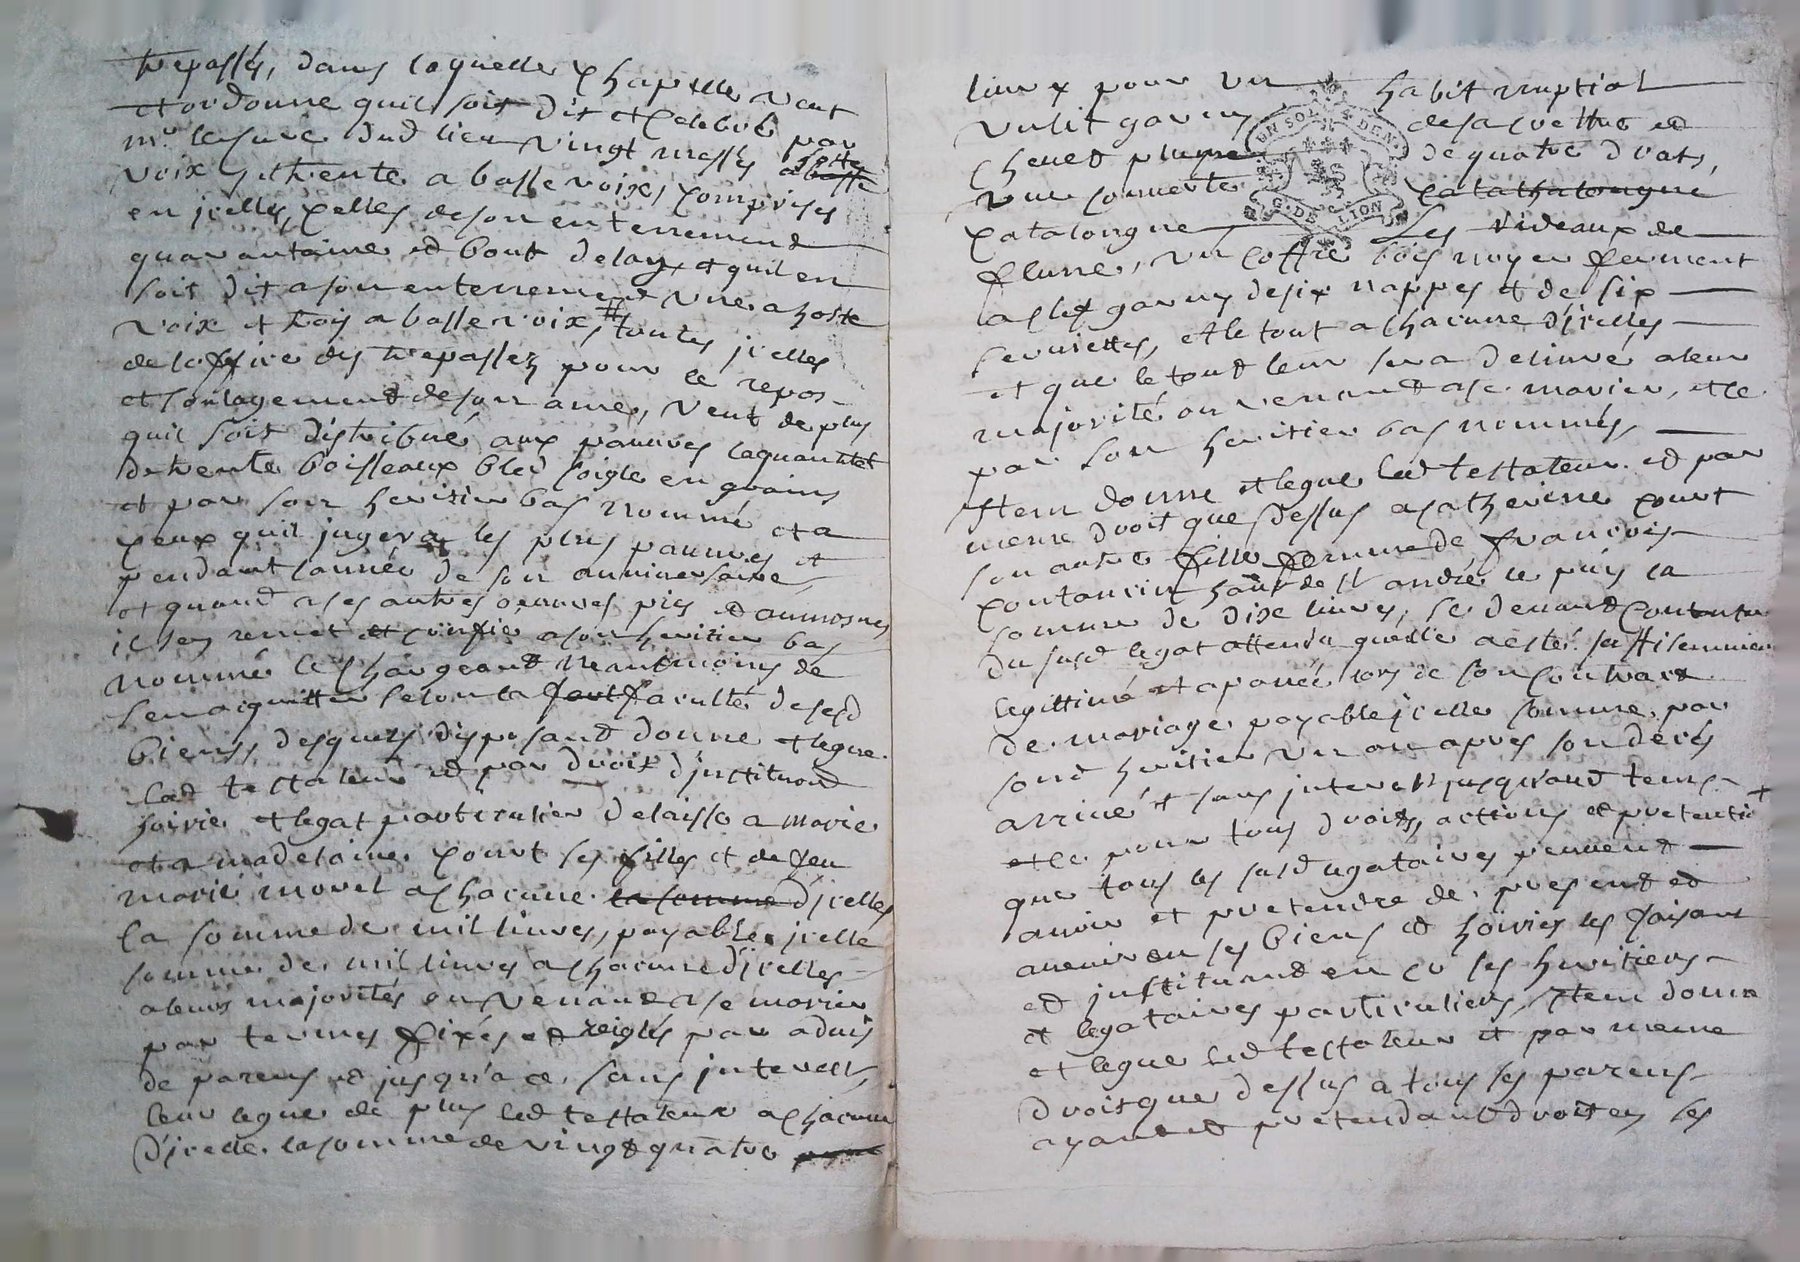 trepassés, dans laquelle Chapelle veut
et ordonne quil soit dit et celebré par
mr le curé dud lieu vingt messes haute
voix et trente a basse voix, comprises
en jcelles celles de son enterrement
quarantaine et bout de lan, et quil en
soit dit a son enterrement une a hoste
voix et trois a basse voix, # toutes jcelles
de loffice des trepassez pour le repos
et soulagement de son ame, veut de plus
quil soit distribué aux pauvres la quantité
de trente boisseaux bled soigle en grains
et par son heritier bas nommé et a
ceux quil jugera les plus pauvres et
pendant lannée de son anniversaire
et quand a ses autres oeuvres pies et aumosnes
il sen remet et confie a son heritier bas
nommé le chargeant neantmoins de
sen aquitter selon la faculté de sesd
biens, desquels disposant donne et legue
led testateur et par droit d'jnstituond
hoirie et legat particulier delaisse a marie
et a madelaine court ses filles et de feu
marie morel a chacune la somme d'jcelles
la somme de mil livres, payable jcelle
somme de mil livres a chacune d'jcelles
a leurs majorités ou venant a se marier
par termes fixés et reiglés par advis
de parens et jusqu'a ce, sans jnterest,
leur legue de plus led testateur a chacune
d'jcelle la somme de vingt quatre
livres pour un habit nuptial
un lit garny de sa couettre et
chevet plume de quatre draps
une couverte catathalongne
catalongne les rideaux de
fleuret, un coffre bois noyer fermant
a clef garny de six nappes et de six
serviettes, et le tout a chacune d'jcelles
et que le tout leur sera delivré a leur
majorité ou venant a se marier, et ce
par son heritier bas nommés
Jtem donne et legue led testateur et par
meme droit que dessus a catherine court
son autre fille femme de françois
coutancin hant de st andré le puy la
somme de dix livres, se devant contenter
du susd legat attendu quelle a esté suffisemment
legittimé et apanée lors de son contract
de mariage, payable jcelle somme par
sond heritier un an apres son deces
arrivé et sans jnterest jusquaud tems
et ce pour tous droits, actions et pretentio +
que tous les susd legataires peuvent
avoir et pretendre de present et
avenir en ses biens et hoiries les faisant
et jnstituant en ce ses heritiers
et legataires particuliers, Jtem donne
et legue led testateur et par meme
droit que dessus a tous ses parens
ayant et pretendant droit en ses
UN SOL DEN.
G. DE LION